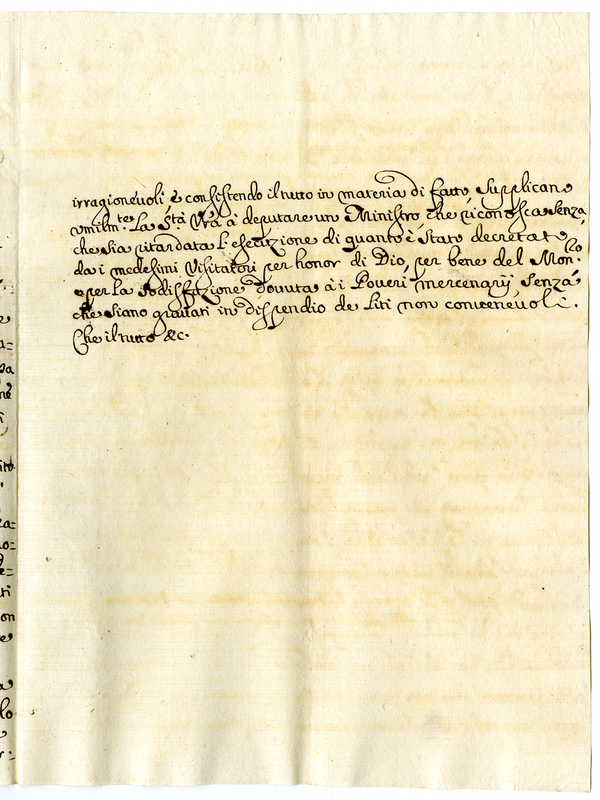 irragionevoli e consistendo il tutto in materia di fatto, Supplicano
umilm.te La S.tà Vr̃a à deputare un Ministro che riconosca senza,
che sia ritardata l'esecuzione di quanto è stato decretato
da i medesimi Visitatori per honor di Dio, per bene del Mon.ro
e per la sodisfazione dovuta à i Poveri mercenarij senza
che siano gravati in dispendio de liti non convenevoli.
Che il tutto &c.